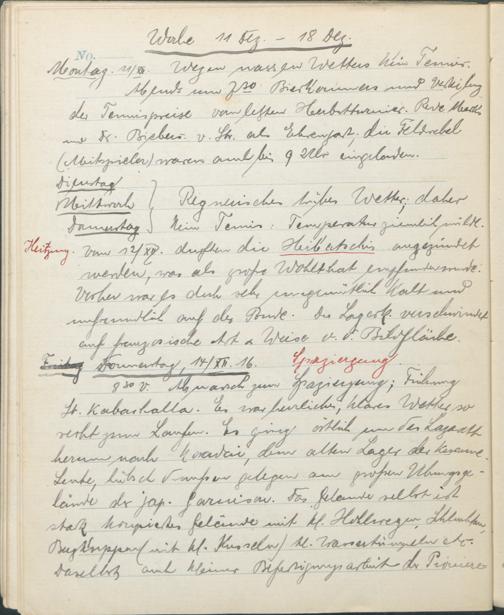 Woche 11 Dez. – 18 Dez.
No.
Montag. 11/XII. Wegen nassen Wetters kein Tennis.
Abends um 7.30 Bierkommers und Verteilung
der Tennispreise vom letzten Herbstturnier.
und Dr. v. Str. als Ehrengast, die Feldwebel
(Mitspieler) waren auch bis 9 Uhr eingeladen.
Dienstag
Mittwoch } Regnerisches trübes Wetter; daher
Donnerstag kein Tennis. Temperatur ziemlich mild.
Heizung. vom 12/XII. durften die Hibatschis angezündet
werden, was als große Wohlthat empfunden wurde.
Vorher war es doch sehr ungemütlich kalt und
unfreundlich auf der Bude. Der verschwindet
auf französische Art & Weise v. d. Bildfläche.
Freitag Donnerstag, 14/XII. 16. Spaziergang.
8 30 V. Abmarsch zum Spaziergang; Führung
St. Es war herrliches, klares Wetter, so
recht zum Laufen. Es ging östlich um die
herum nach dem alten Lager der
Leute, hübsch draußen gelegen am großen Übungsge-
lände der jap. Garnison. Das Gelände selbst ist
stark Gelände mit kl. Hohlwegen, Schluchten,
Bergkuppen (mit kl. Kusseln) kl. Wassertümpeln etc.
Daselbst auch kleine Befestigungsarbeit der Pioniere